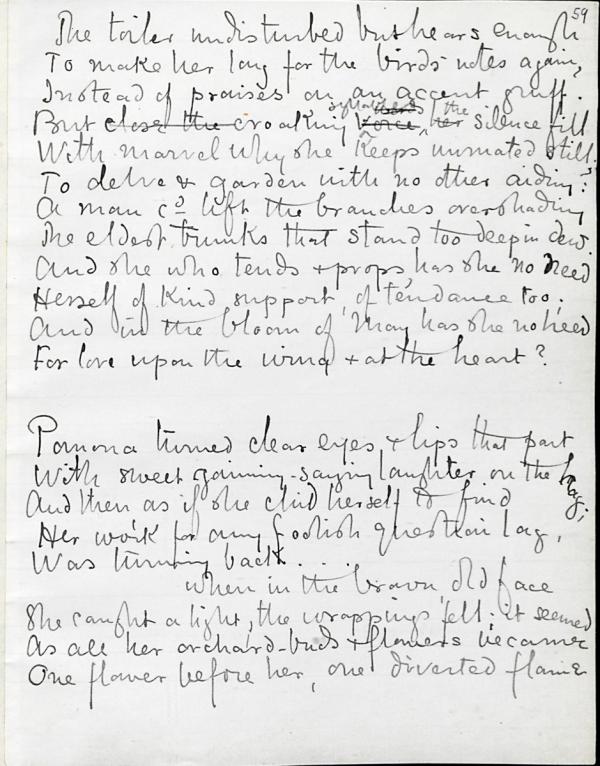 59
The toiler undisturbed but hears enough
To make her long for the birds' notes again,
Instead of praises on an accent gruff.
But close the croaking syllables, the silence fill
With marvel why she keeps unmated still.
To delve & garden with no other aiding?
A man cd lift the branches overshading
The eldest trunks that stand too deep in dew.
And she who tends & props, has she no need
Herself of kind support, of tendance too;
And in the bloom of May has she no heed
For love upon the wing & at the heart?
Pomona turned clear eyes & lips that part
With sweet gaining-saying laughter on the hag;
And then as if she chid herself to find
Her work for any foolish question lag,
Was turning back . . . .
when in the brown, old face
She caught a light, the wrappings fell: it seemed
As all her orchard-buds & flowers became
One flower before her, one diverted flame